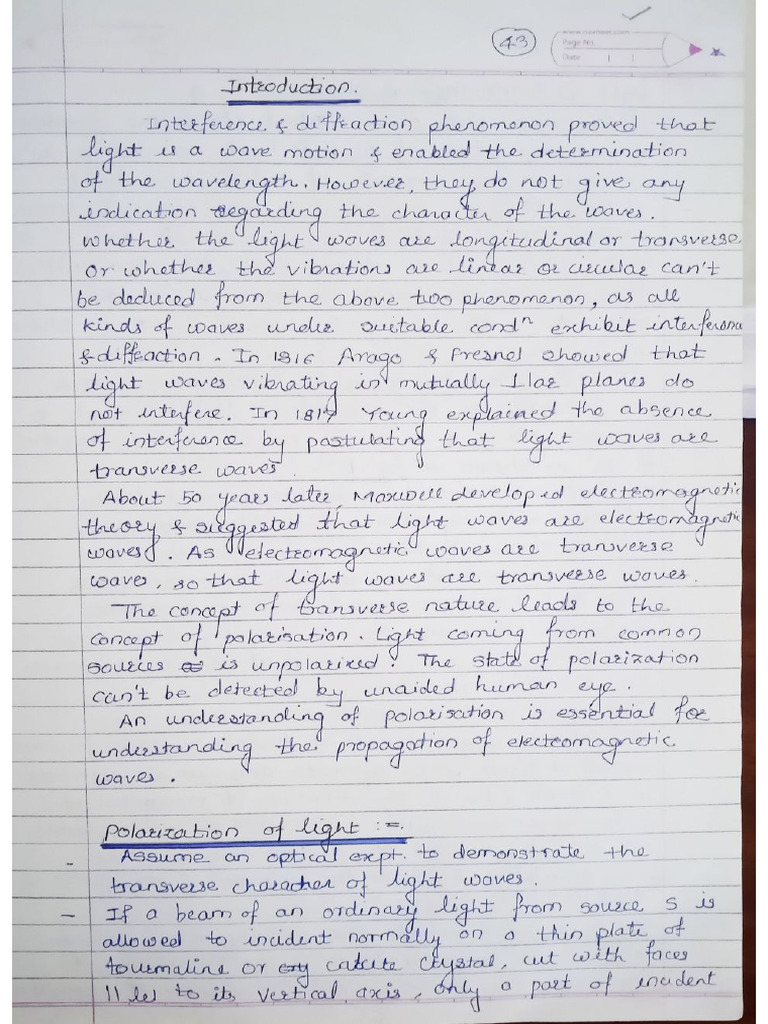 43
www.navneet.com
Page No.
Date
Introduction.
Interference & diffraction phenomenon proved that
light is a wave motion & enabled the determination
of the wavelength. However, they do not give any
indication regarding the character of the waves.
Whether the light waves are longitudinal or transverse
or whether the vibrations are linear or circular can't
be deduced from the above two phenomenon, as all
kinds of waves under suitable condⁿ exhibit interference
& diffraction. In 1816 Arago & Fresnel showed that
light waves vibrating in mutually ⊥lar planes do
not interfere. In 1817 Young explained the absence
of interference by postulating that light waves are
transverse waves.
About 50 years later, Maxwell developed electromagnetic
theory & suggested that light waves are electromagnetic
waves. As electromagnetic waves are transverse
wave, so that light waves are transverse waves.
The concept of transverse nature leads to the
concept of polarisation. Light coming from common
sources is unpolarized. The state of polarization
can't be detected by unaided human eye.
An understanding of polarisation is essential for
understanding the propagation of electromagnetic
waves.
Polarization of light :=.
- Assume an optical expt. to demonstrate the
transverse character of light waves.
- If a beam of an ordinary light from source S is
allowed to incident normally on a thin plate of
tourmaline or calcite crystal, cut with faces
11 les to its vertical axis, only a part of incident